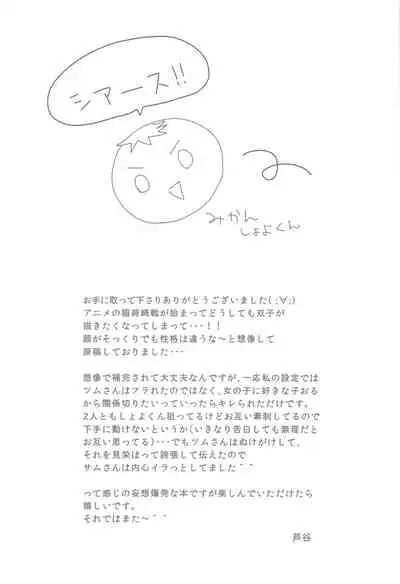 シアース!!
みかん
しょよくん
お手に取って下さりありがとうございました( ;∀;)
アニメの稲荷崎戦が始まってどうしても双子が
描きたくなってしまって・・・!!
顔がそっくりでも性格は違うな〜と想像して
原稿しておりました・・・
想像で補完されて大丈夫なんですが、一応私の設定では
ツムさんはフラれたのではなく、女の子に好きな子おる
から関係切りたいっていったらキレられただけです。
2人ともしょよくん狙ってるけどお互い牽制してるので
下手に動けないというか(いきなり告白しても無理だと
お互い思ってる)・・・でもツムさんはぬけがけして、
それを見栄はって誇張して伝えたので
サムさんは内心イラっとしてました＾＾
って感じの妄想爆発な本ですが楽しんでいただけたら
嬉しいです。
それではまた〜＾＾
芦谷